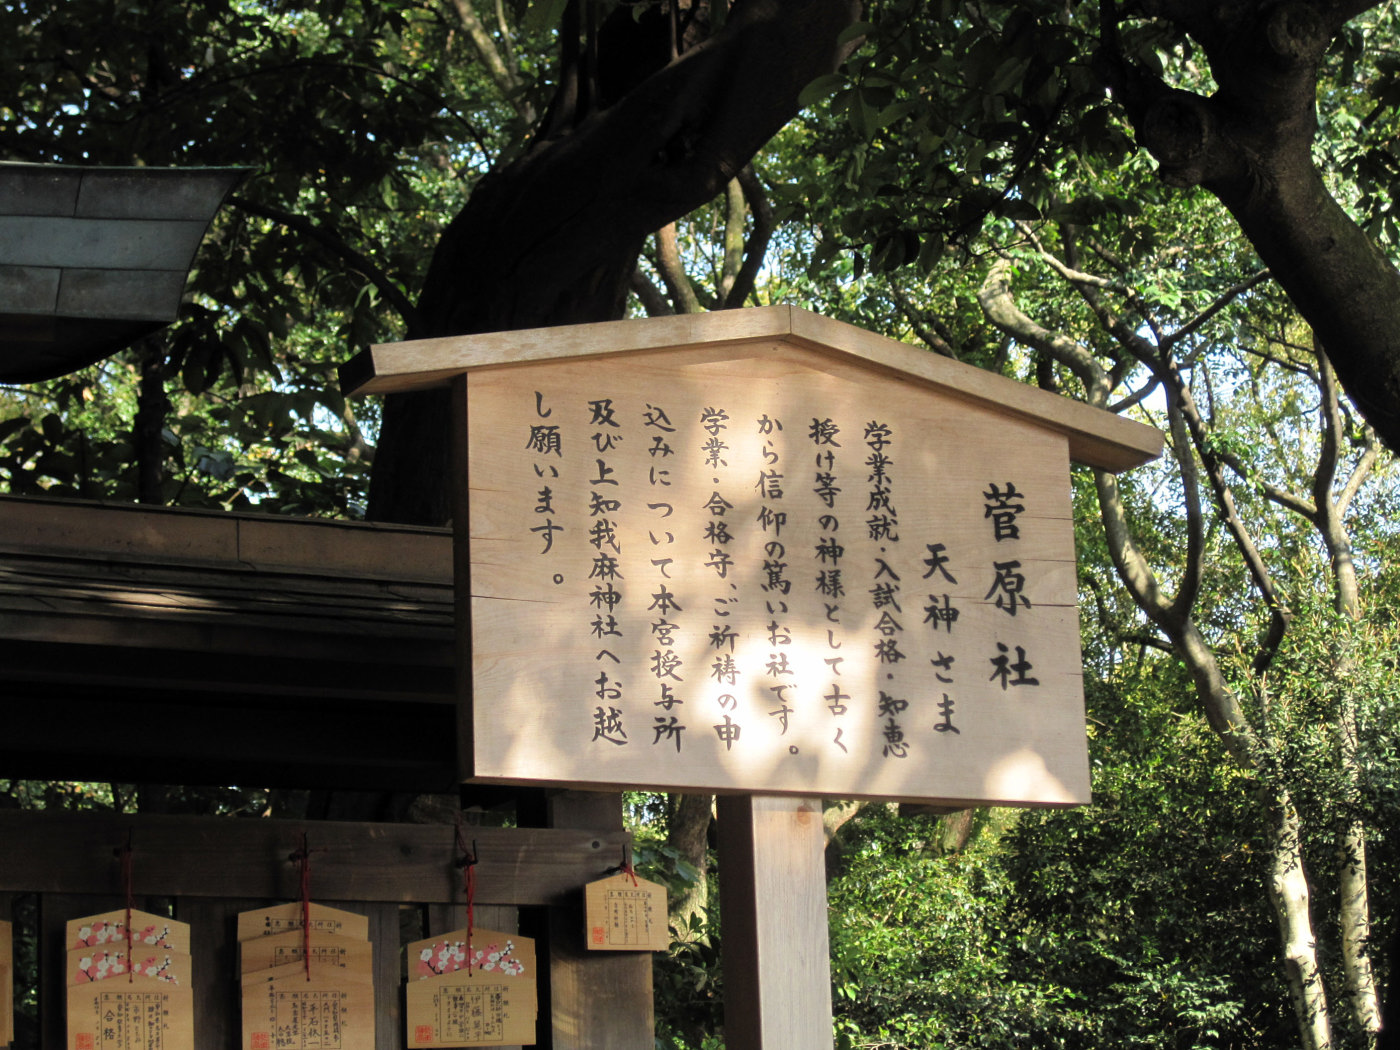 菅原社
天神さま
学業成就・入試合格・知恵
授け等の神様として古く
から信仰の篤いお社です。
学業・合格守、ご祈祷の申
込みについて本宮授与所
及び上知我麻神社へお越
し願います。
合格